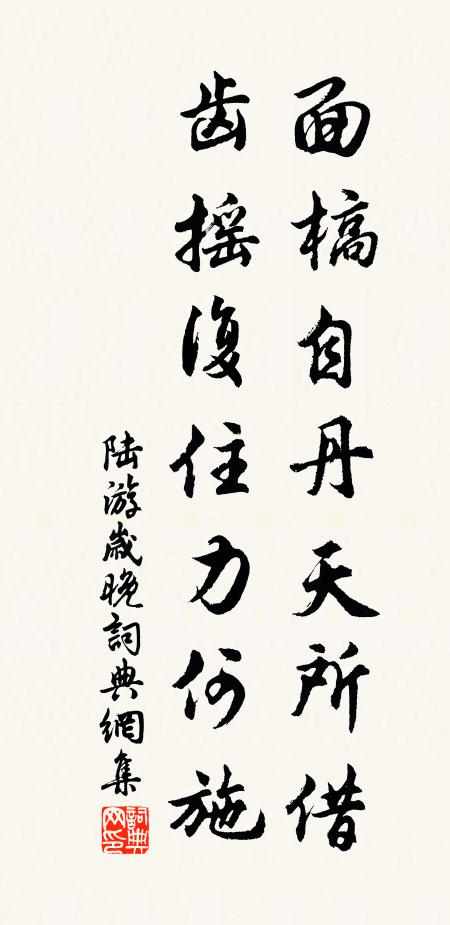 面槁自丹天所借
齿摇復住力何施
陆游歲晚詞典網集
詞典
网印